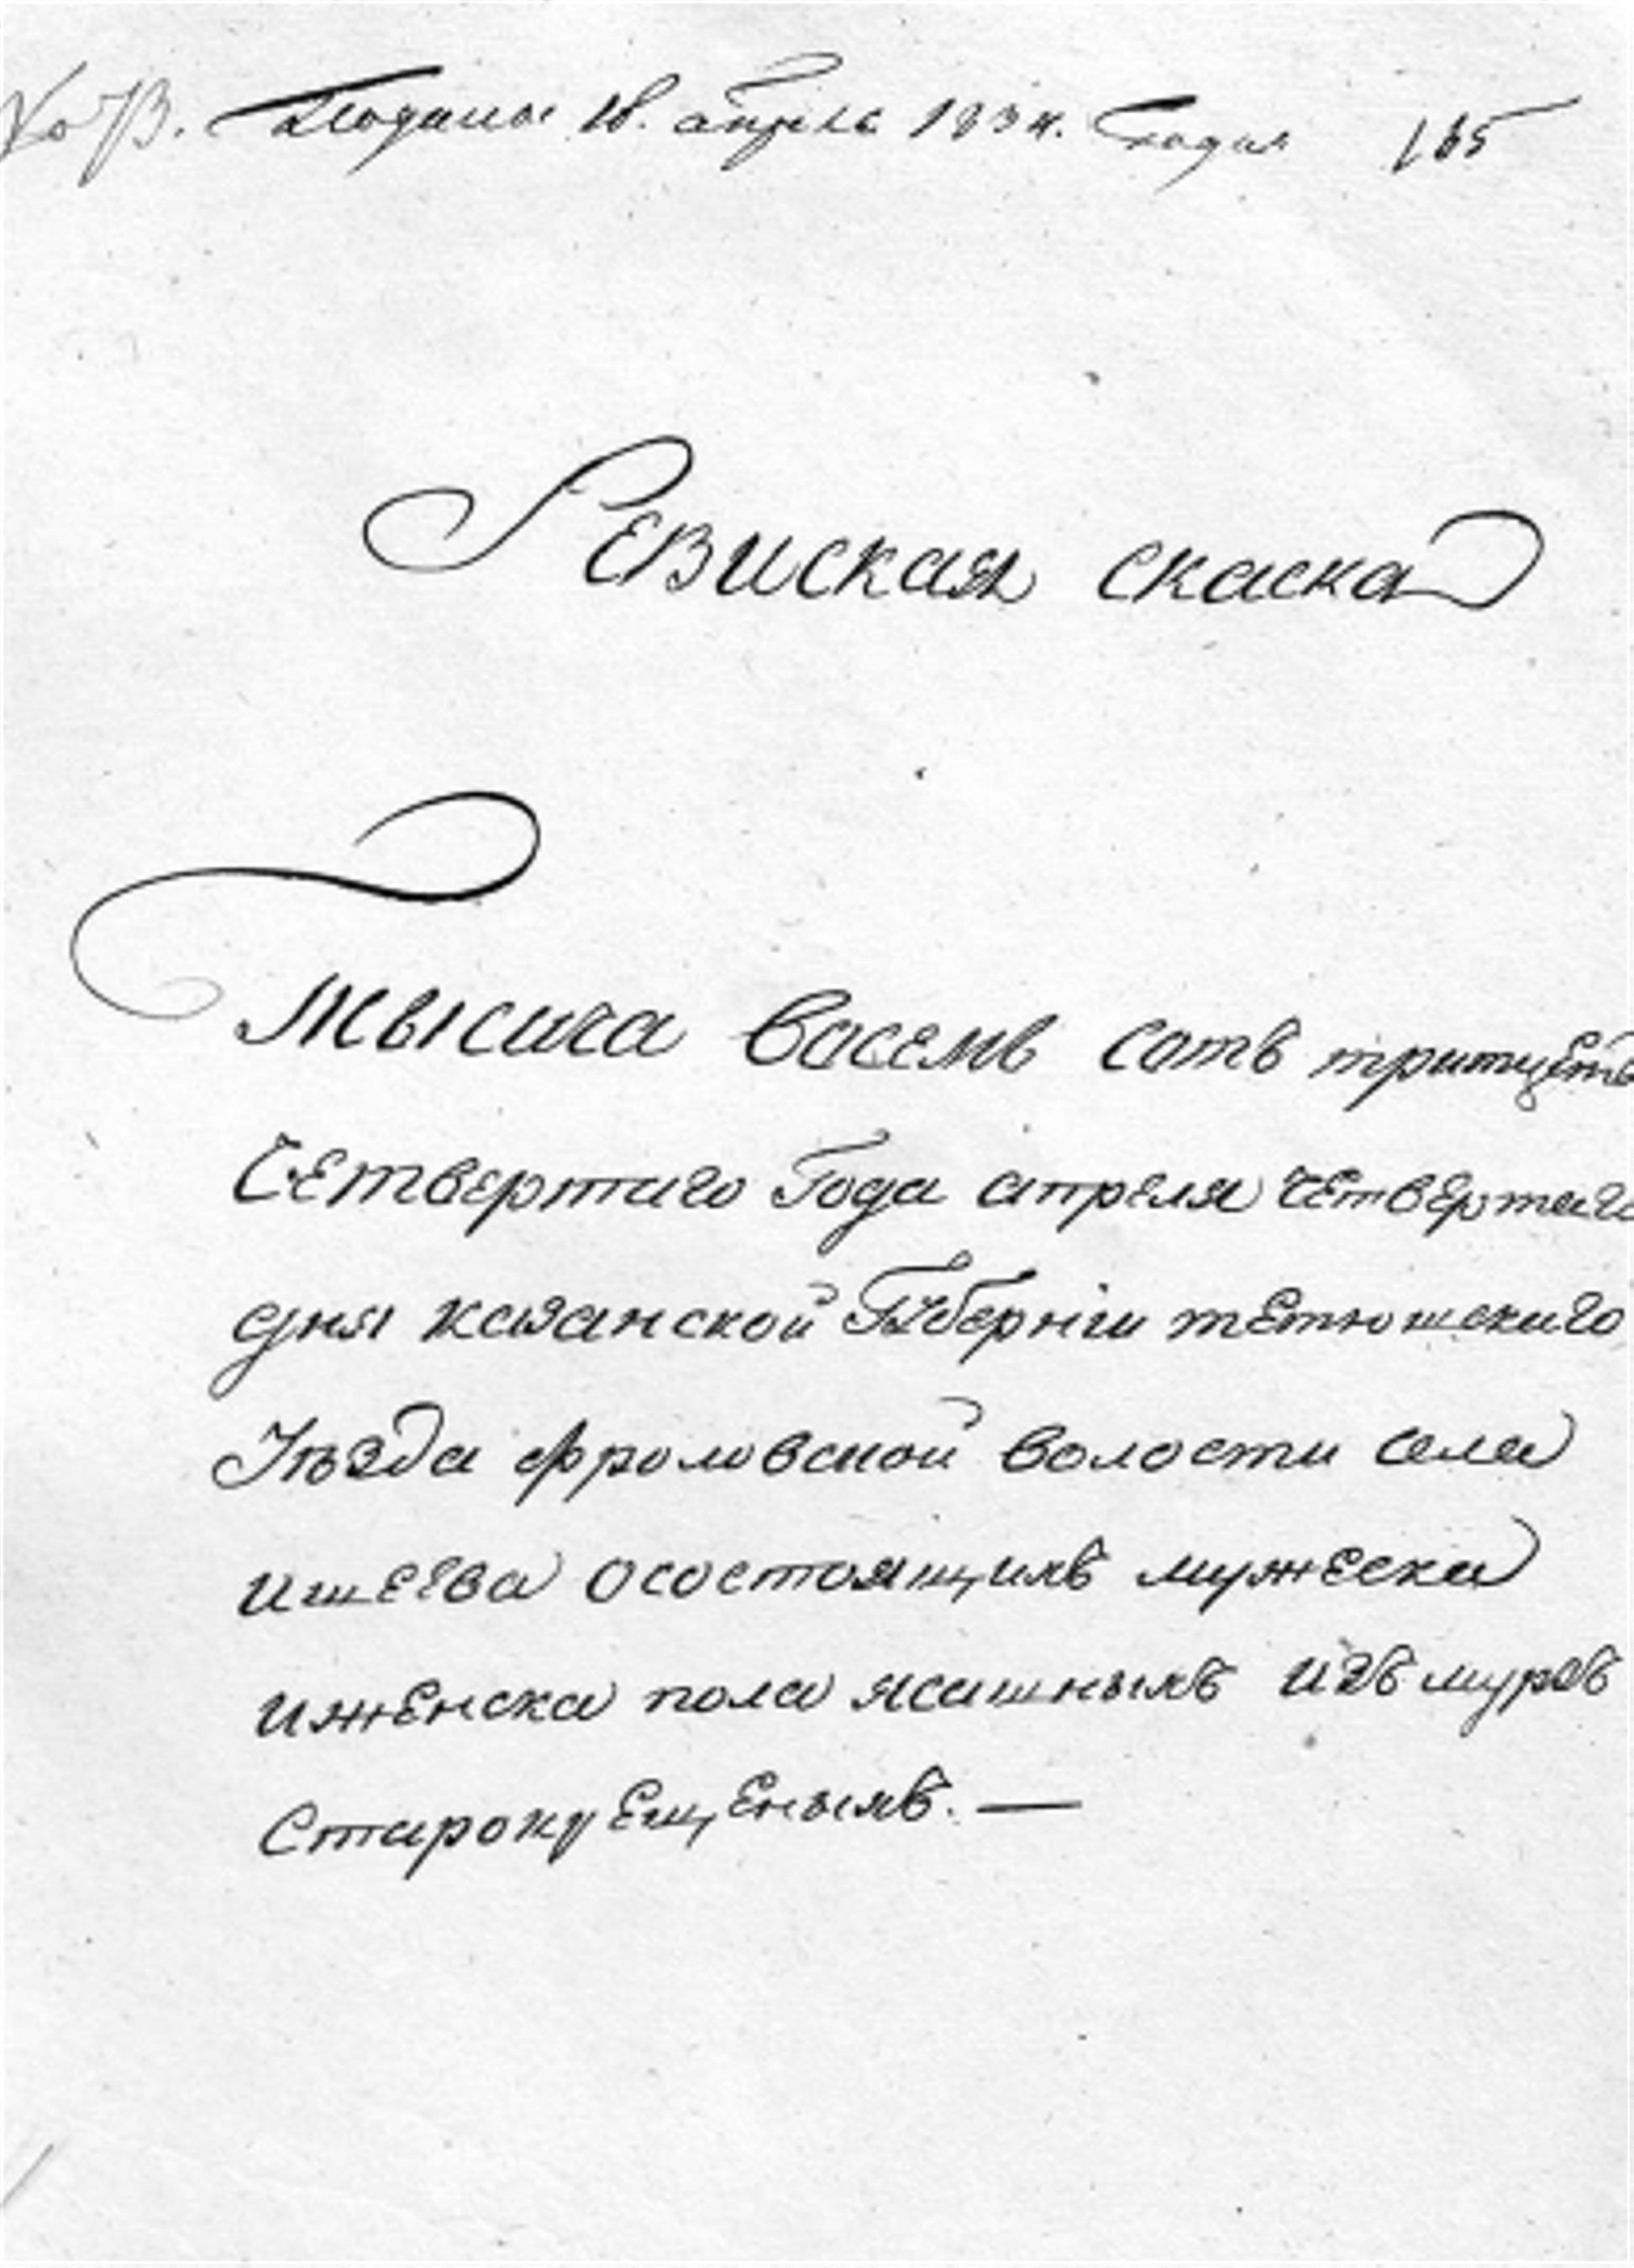 Подана 18. апреля 1834. Года 165
Ревиская скаска
Тысича восемь сотъ тритцеть
Четвертаго Года апреля четвертаго
дня казанской Губерніи тетюшскаго
Уѣзда фроловской волости села
ишеева осостоящихъ мужеска
иженска пола ясашныхъ изъ мурзъ
старокрещеныхъ. —